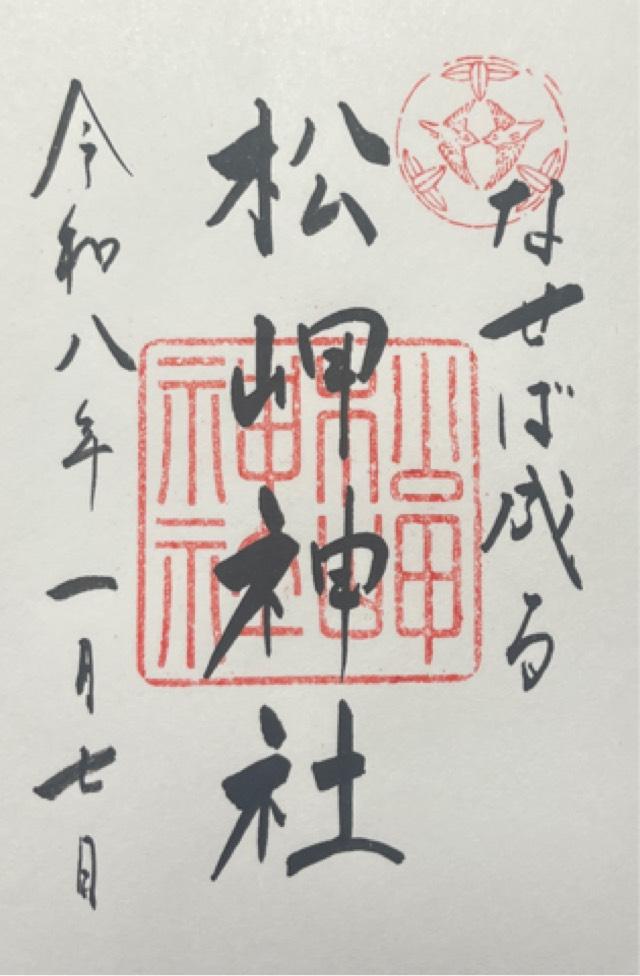 なせば成る
松岬神社
松岬神社
令和八年一月七日